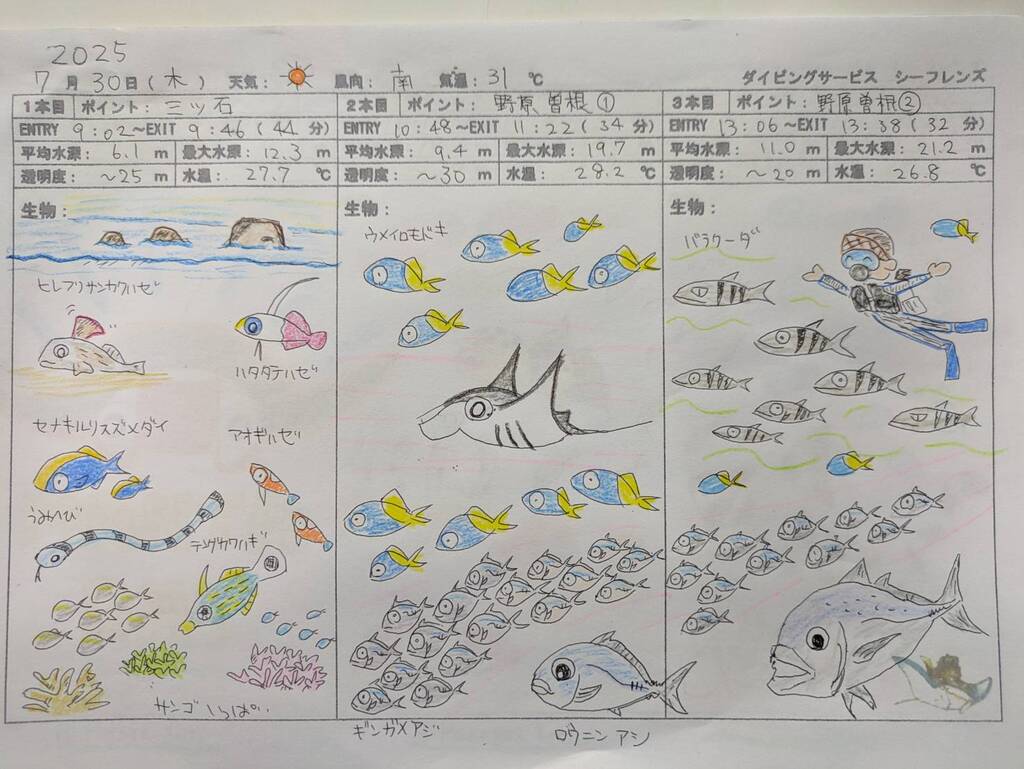 2025
7月30日(木) 天気: 風向: 南 気温: 31℃ ダイビングサービス シーフレンズ
1本目 ポイント: 三ツ石
ENTRY 9:02~EXIT 9:46(44分)
平均水深: 6.1m 最大水深: 12.3m
透明度: ~25m 水温: 27.7℃
生物:
ヒレフリサンカクハゼ
ハタタテハゼ
セナキルリスズメダイ
アオギハゼ
うみへび
テングカワハギ
サンゴいっぱい
2本目 ポイント: 野原曽根①
ENTRY 10:48~EXIT 11:22(34分)
平均水深: 9.4m 最大水深: 19.7m
透明度: ~30m 水温: 28.2℃
生物:
ウメイロモドキ
ギンガメアジ
ロウニンアジ
3本目 ポイント: 野原曽根②
ENTRY 13:06~EXIT 13:38(32分)
平均水深: 11.0m 最大水深: 21.2m
透明度: ~20m 水温: 26.8℃
生物:
バラクーダ